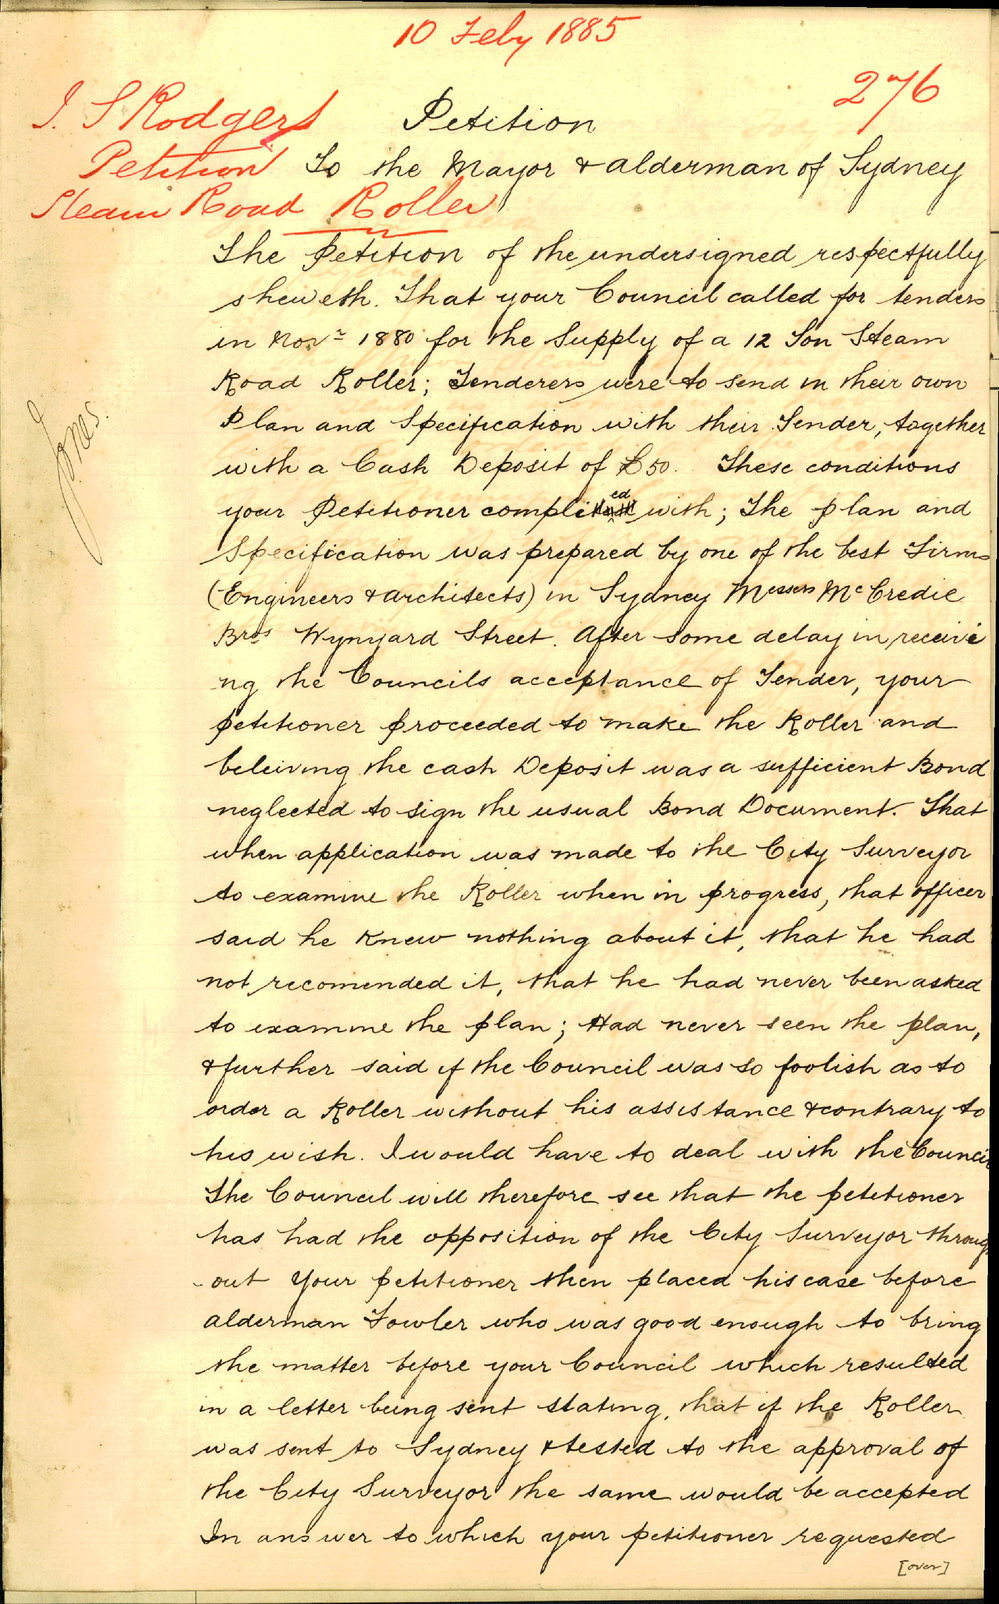 10 Feby 1885
276
J. S Rodgers
Petition
Steam Road Roller
Petition
To the Mayor & alderman of Sydney
The Petition of the undersigned respectfully
sheweth. That your Council called for tenders
in Novr 1880 for the Supply of a 12 Ton Steam
Road Roller; Tenderers were to send in their own
Plan and Specification with their Tender, together
with a Cash Deposit of £50. These conditions
your Petitioner complied with; The plan and
Specification was prepared by one of the best Firms
(Engineers & architects) in Sydney Messers McCredie
Bros Wynyard Street. After some delay in receivi
ng the Councils acceptance of Tender, your
petitioner proceeded to make the Roller and
beleiving the cash Deposit was a sufficient Bond
neglected to sign the usual Bond Document. That
when application was made to the City Surveyor
to examine the Roller when in progress, that officer
said he knew nothing about it, that he had
not recomended it, that he had never been asked
to examine the plan; Had never seen the plan,
& further said if the Council was so foolish as to
order a Roller without his assistance & contrary to
his wish. I would have to deal with the Council
The Council will therefore see that the petitioner
has had the opposition of the City Surveyor throug
-out Your petitioner then placed his case before
alderman Fowler who was good enough to bring
the matter before your Council which resulted
in a letter being sent stating, that if the Roller
was sent to Sydney & tested to the approval of
the City Surveyor the same would be accepted
In answer to which your petitioner requested
[over]
Jones.